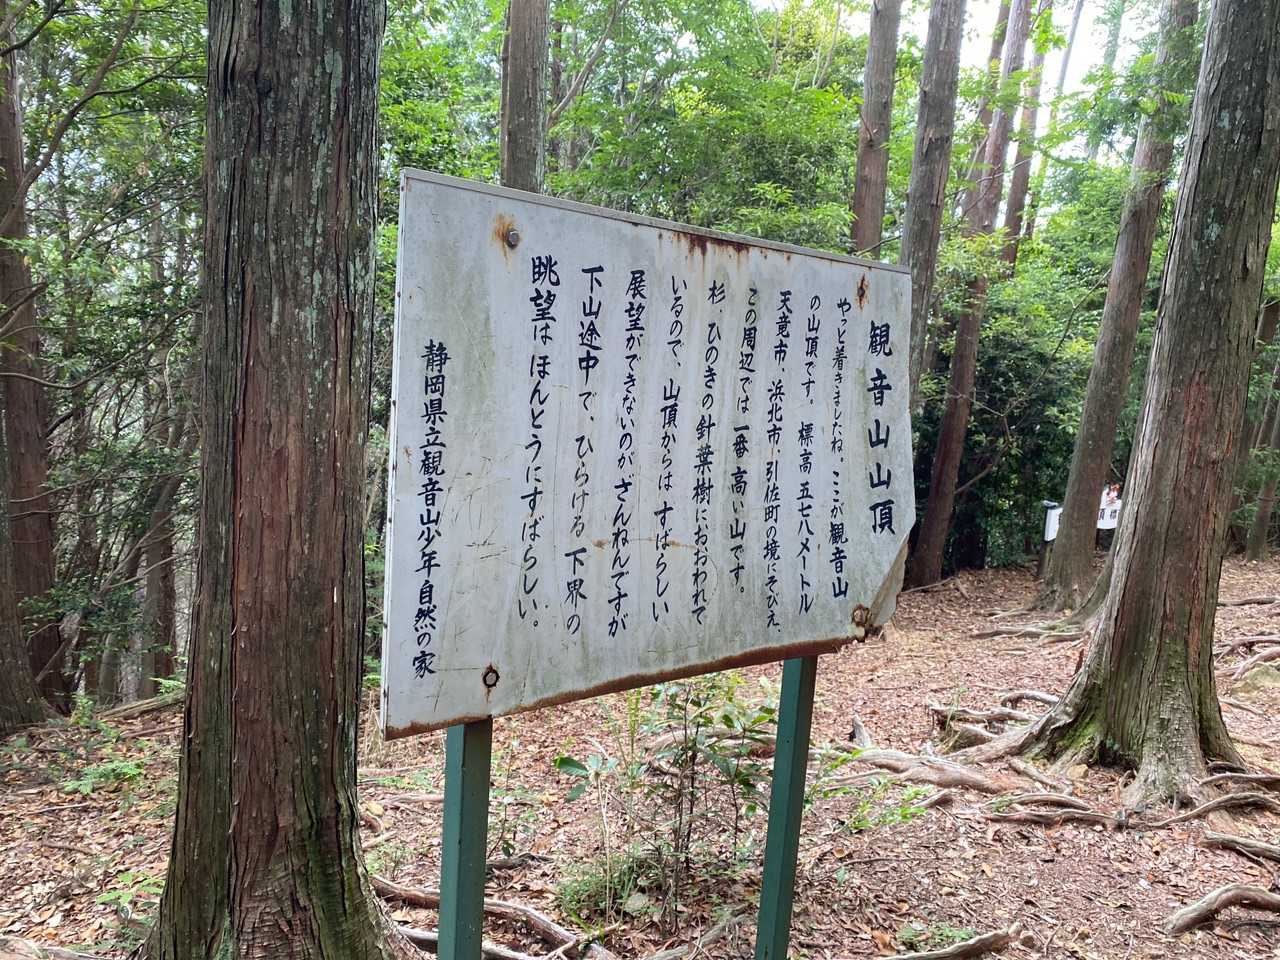 観音山山頂
やっと着きましたね。ここが観音山
の山頂です。標高五七八メートル
天竜市、浜北市、引佐町の境にそびえ、
この周辺では一番高い山です。
杉、ひのきの針葉樹におおわれて
いるので、山頂からはすばらしい
展望ができないのがざんねんですが
下山途中で、ひらける下界の
眺望はほんとうにすばらしい。
静岡県立観音山少年自然の家
頂標